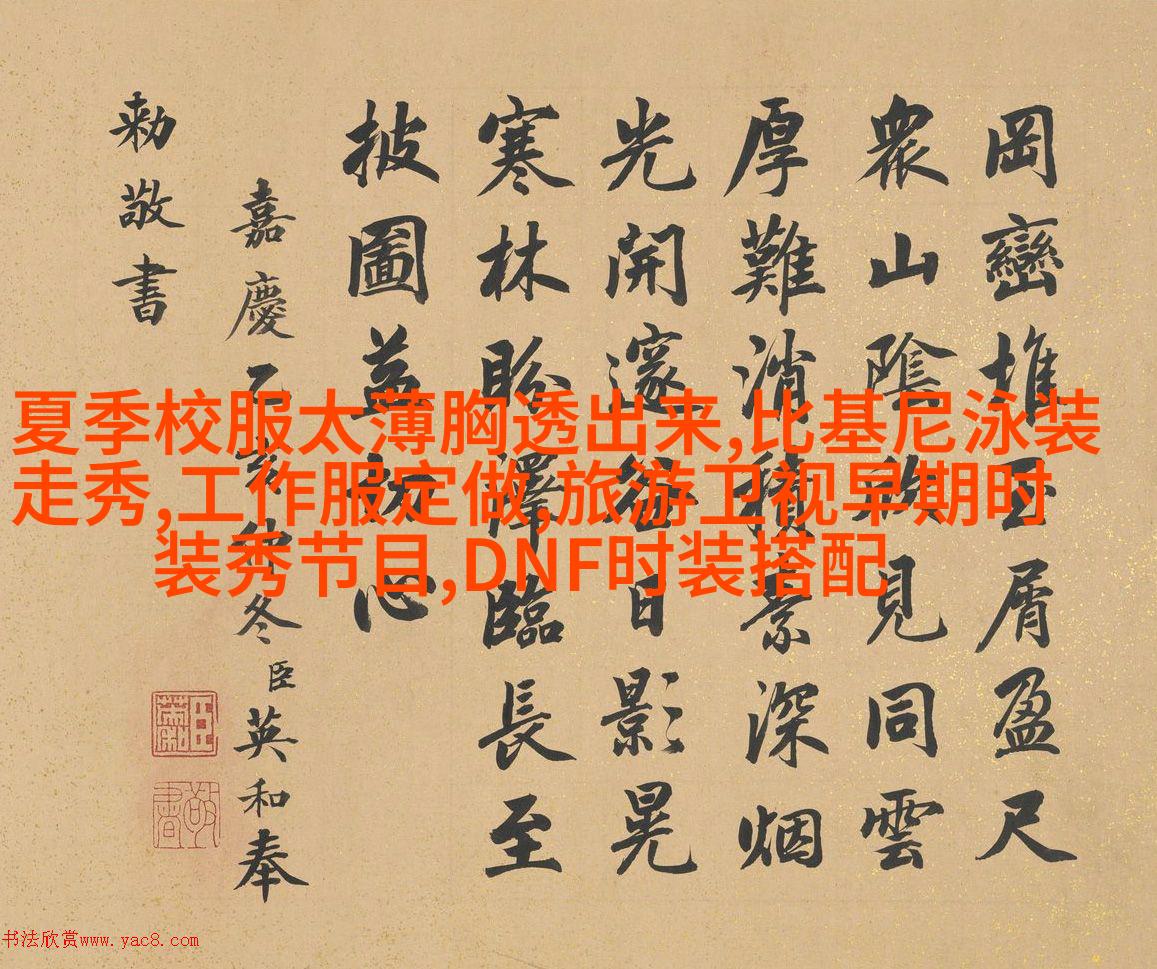 岡巒堆玉屑盈尺
衆山陰見同雲
厚難消積素深烟
光開邃谷日影晃
寒林盼澤臨長至
披圖益切心
嘉慶乙亥仲冬臣英和奉
勅敬書
夏季校服太薄胸透出来,比基尼泳装
走秀,工作服定做,旅游卫视早期时
装秀节目,DNF时装搭配
书法欣赏www.yac8.com